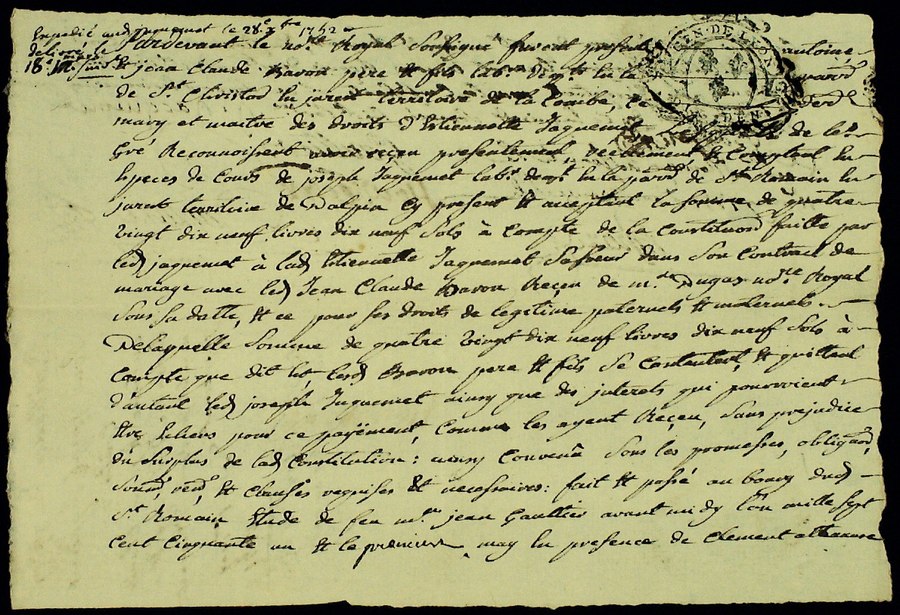 Expedié aud jaquemet le 28e 7bre 1752
Pardevant le nore Royal Soussigné furent presents antoine
& jean Claude Bavon pere & fils labrs
de St Christod En jarent territoire de la Combe, led
mary et maitre des droits d'Estiennette Jaquemet de leur
Gré Reconnoissent avoir reçeu presentement, reellement & Comptant En
Especes de Cours de joseph Jaquemet labr demt En la parroisse de St Romain En
jarent territoire de Dalpin Cy present & acceptant la somme de quatre
vingt dix neuf livres dix neuf sols à Compte de la Constitution faitte par
led jaquemet à lad Estiennette Jaquemet Sa Soeur dans Son Contract de
mariage avec led Jean Claude Bavon Reçeu de me Dugas nore Royal
Sous Sa datte, & ce pour ses droits de legitime paternels & maternels.
De laquelle Somme de quatre vingt dix neuf livres dix neuf Sols à
Compte que dit Est lesd Bavon pere & fils Se Contentent, & quittent
d'autant led joseph Jaquemet ainsy que des interets qui pourroient
Etre Echers pour ce payëment, Comme les ayent Reçeu, Sans prejudice
du Surplus de lad Constitution: ainsy Convenu Sous les promesses, obligaons,
Soumns, renons, & Clauses requises & necessaires: fait & passé au bourg dud
St Romain Etude de feu me jean Gaultier avant midy l'an mille Sept
Cent Cinquante un & le premier may En presence de Clement